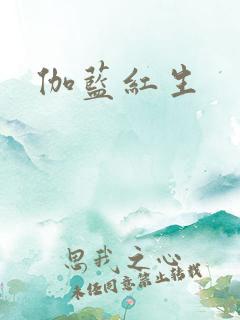 伽藍紅生
思我之心
未经同意禁止转载